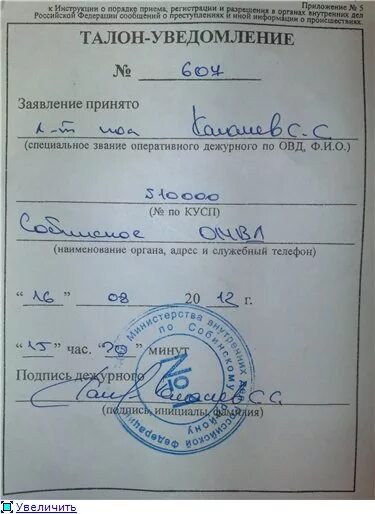 Приложение № 5
к Инструкции о порядке приема, регистрации и разрешения в органах внутренних дел
Российской Федерации сообщений о преступлениях и иной информации о происшествиях.
ТАЛОН-УВЕДОМЛЕНИЕ
№ 607
Заявление принято
л-т пол С.С.
(специальное звание оперативного дежурного по ОВД, Ф.И.О.)
510000
(№ по КУСП)
Собинское ОМВД
(наименование органа, адрес и служебный телефон)
"16" 08 2012 г.
"15" час. "20" минут
Подпись дежурного
С.С.
(подпись, инициалы, фамилия)
Министерства внутренних дел Российской Федерации
по Собинскому району
№ 1
Увеличить